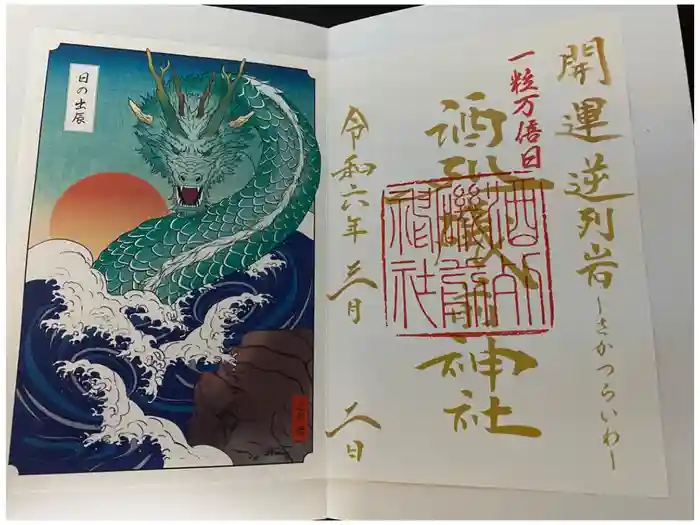 開運 逆列岩 ーさかつらいわー
一粒万倍日
酒列磯前神社
酒列
磯前
神社
令和六年 三月 二日
日の出辰